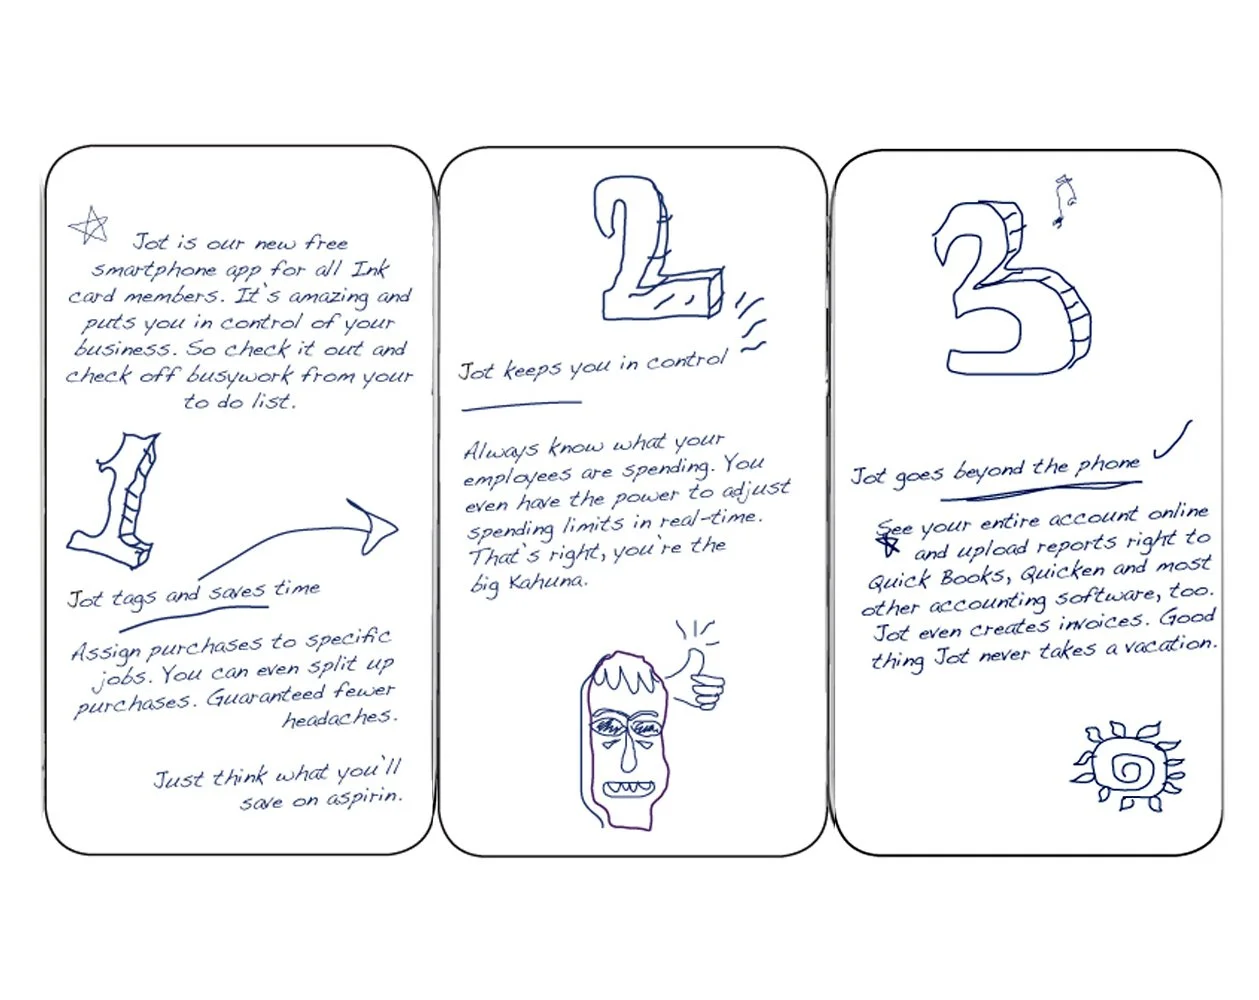 Jot is our new free
smartphone app for all Ink
card members. It's amazing and
puts you in control of your
business. So check it out and
check off busywork from your
to do list.
1
Jot tags and saves time
Assign purchases to specific
jobs. You can even split up
purchases. Guaranteed fewer
headaches.
Just think what you'll
save on aspirin.
2
Jot keeps you in control
Always know what your
employees are spending. You
even have the power to adjust
spending limits in real-time.
That's right, you're the
big Kahuna.
3
Jot goes beyond the phone
See your entire account online
and upload reports right to
Quick Books, Quicken and most
other accounting software, too.
Jot even creates invoices. Good
thing Jot never takes a vacation.